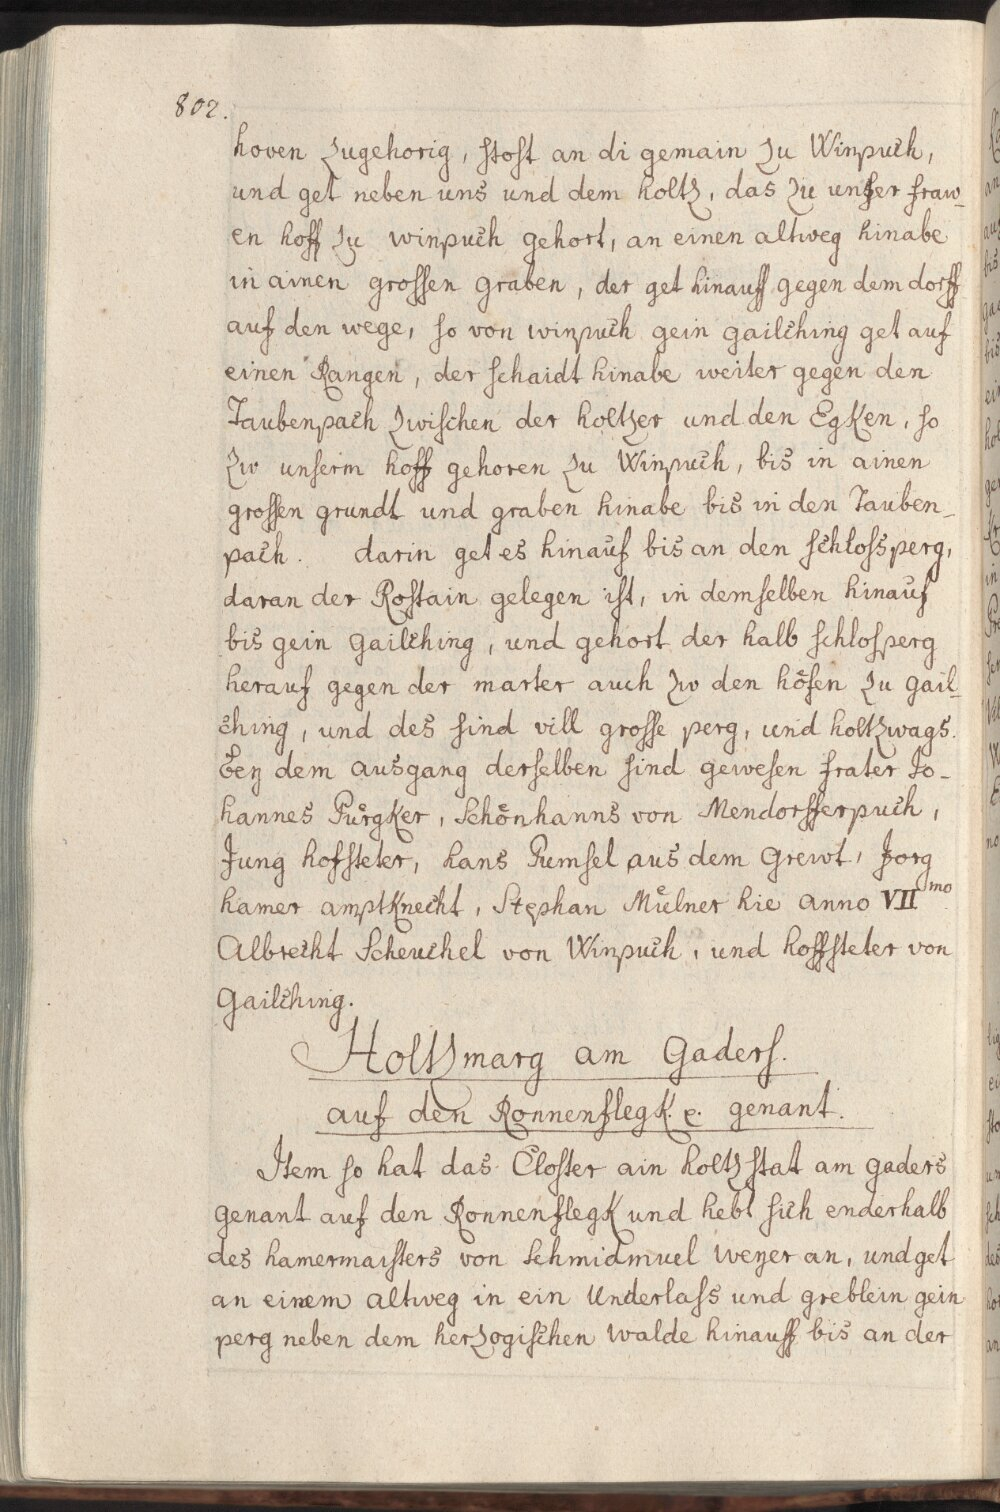 802.
hoven zugehorig, stost an di gemain zu Winpuch,
und get neben uns und dem holtz, das zu unser fraw-
en hoff zu winpuch gehort, an einen altweg hinabe
in ainen grossen graben, der get hinauff gegen dem dorff
auf den wege, so von winpuch gein gailching get auf
einen Rangen, der schaidt hinabe weiter gegen den
Taubenpach zwischen der holtzer und den Egken, so
zw unserm hoff gehoren zu Winpuch, bis in ainen
grossen grundt und graben hinabe bis in den Tauben-
pach. darin get es hinauf bis an den schlossperg,
daran der Rostain gelegen ist, in demselben hinauf
bis gein gailching, und gehort der halb schlosperg
herauf gegen der marter auch zw den höfen zu gail-
ching, und des sind vill grosse perg, und holtzwags.
Bey dem ausgang derselben sind gewesen frater Jo-
hannes Pürgker, Schönhanns von Mendorfferpuch,
Jung hofsteter, hans Pumsel aus dem Grewt, Jorg
hamer amptknecht, Stephan Müelner hie anno VII mo
Albrecht Scheuchel von Winpuch, und hoffsteter von
Gailching.
Holtzmarg am Gaders.
auf den Ronnenflegk. e. genant.
Item so hat das Closter ain holtzstat am gaders
genant auf den Ronnenflegk und hebt sich enderhalb
des hamermaisters von Schmidmuel weyer an, und get
an einem altweg in ein Underlass und greblein gein
perg neben dem herzogischen walde hinauff bis an der